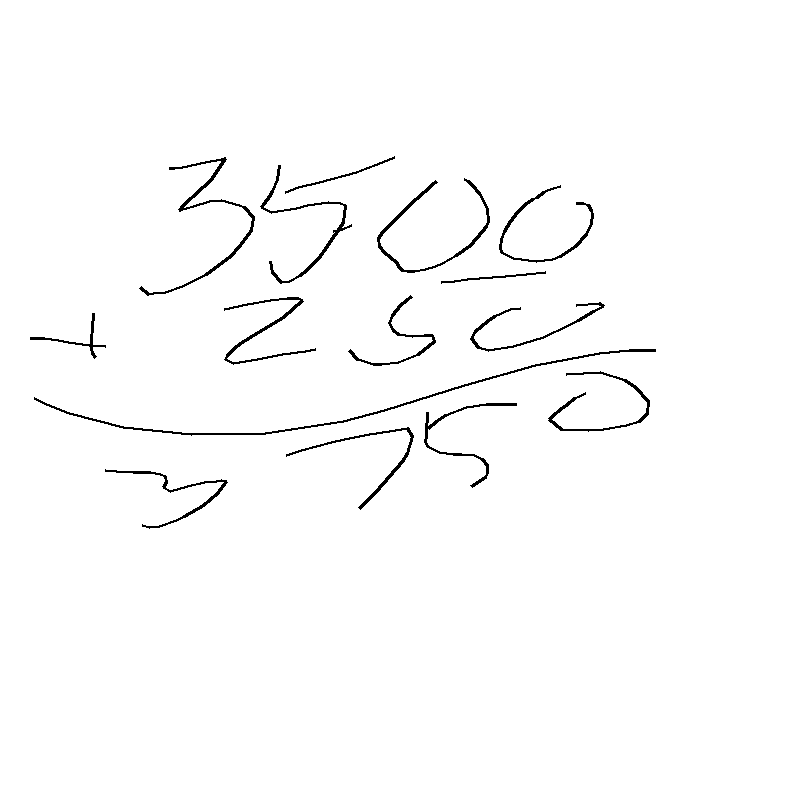 3500
+ 250
3750